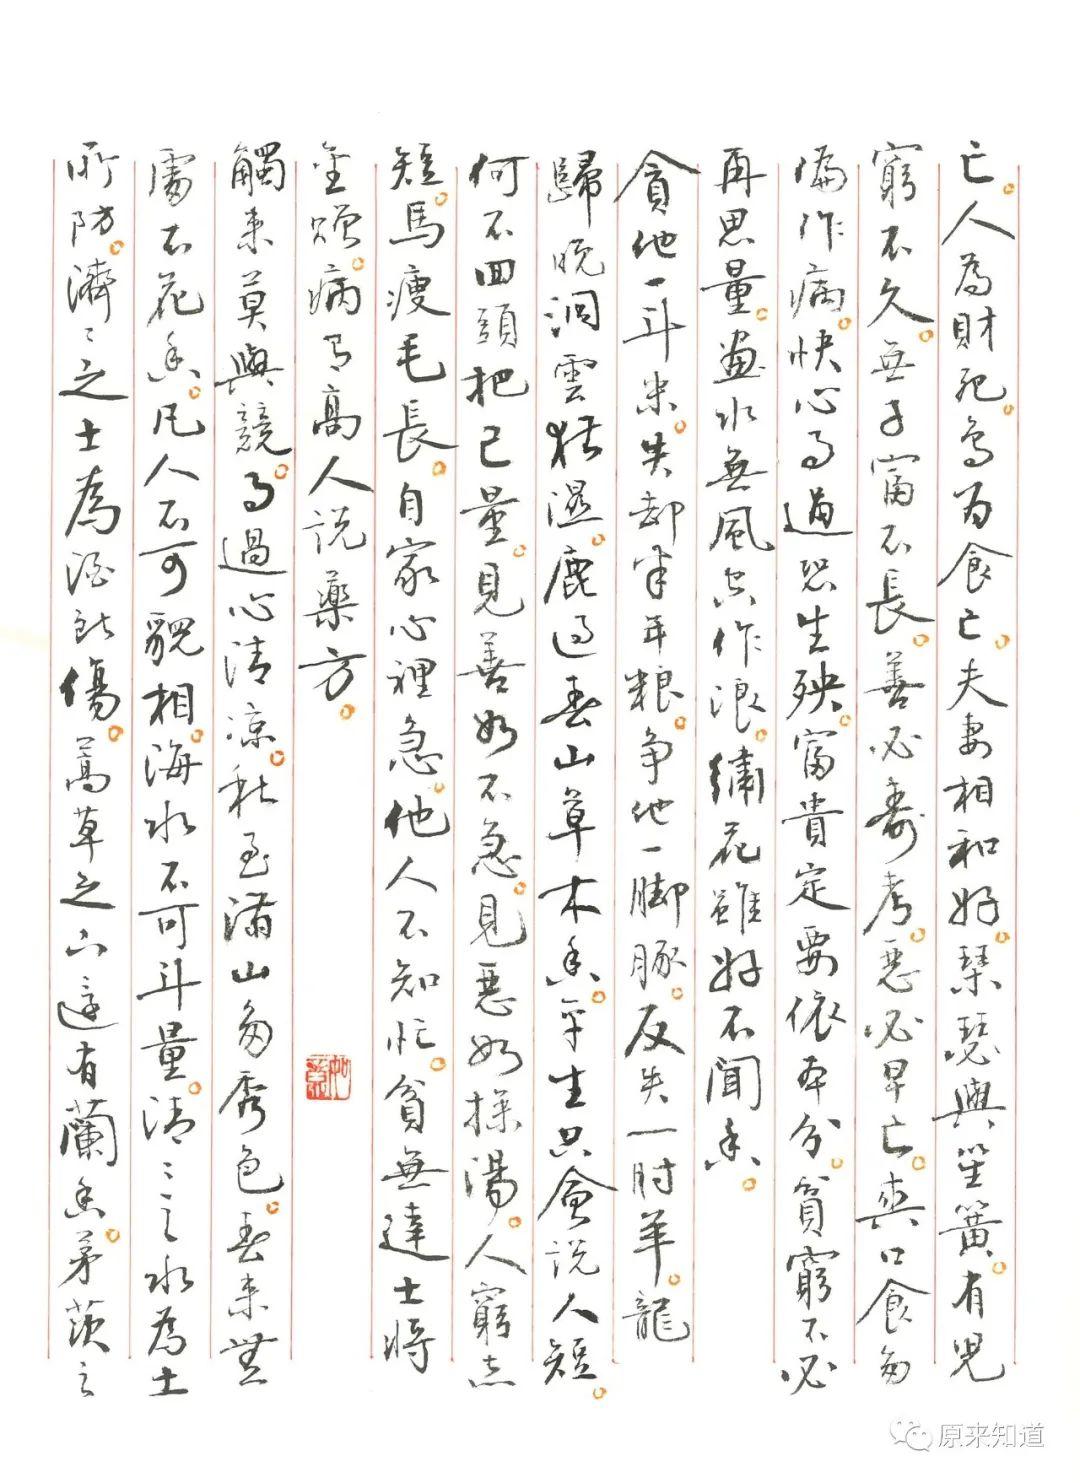 亡。人為財死。鳥為食亡。夫妻相和好。琴瑟與笙簧。有兒
窮不久。無子富不長。善必壽考。惡必早亡。爽口食多
偏作病。快心事過恐生殃。富貴定要依本分。貧窮不必
再思量。畫水無風空作浪。繡花雖好不聞香。
貪他一斗米。失却半年粮。争他一脚豚。反失一肘羊。龍
歸晚洞雲猶濕。鹿過春山草木香。平生只會說人短。
何不回頭把己量。見善如不急。見惡如探湯。人窮志
短。馬瘦毛長。自家心裡急。他人不知忙。貧無達士將
金贈。病有高人說藥方。
觸來莫與競。事過心清涼。秋至滿山多秀色。春來無
處不花香。凡人不可貌相。海水不可斗量。清々之水為土
所防。濟々之士為酒所傷。蒿草之下還有蘭香。茅茨之
原来知道